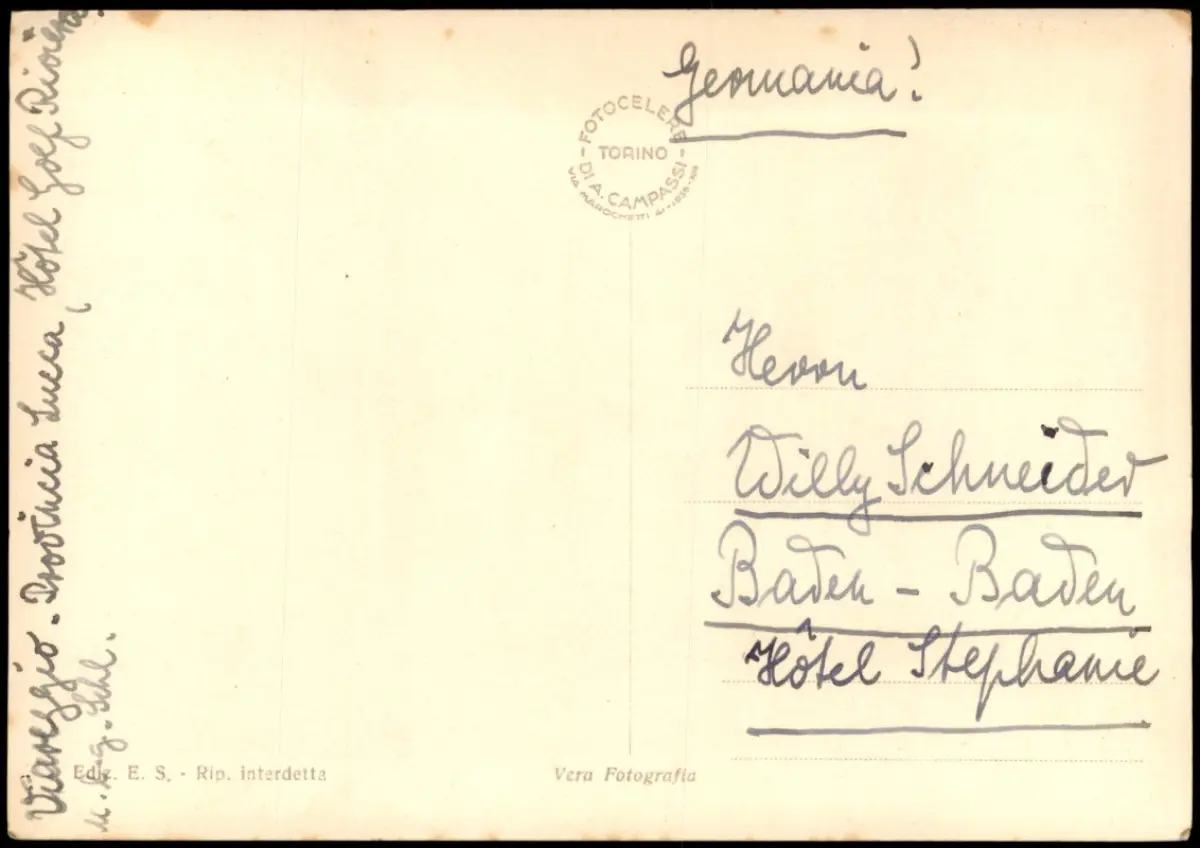 Germania!
FOTOCELERE
TORINO
DI A. CAMPASSI
VIA MAROCHETTI 41-1935-XIII
Herrn
Willy Schneider
Baden - Baden
Hôtel Stephanie
Viareggio - Provincia Lucca, Hôtel Golf Riviera.
Ediz. E. S. - Rip. interdetta
Vera Fotografia